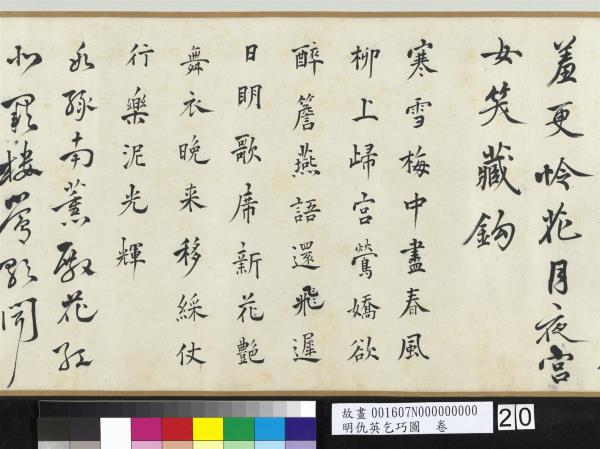 羞更怜花月夜宮
女笑藏鉤
寒雪梅中盡春風
柳上歸宮鶯嬌欲
醉簷燕語還飛遲
日明歌席新花艷
舞衣晚来移綵仗
行樂泥光輝
水綠南薰殿花紅
北闕樓鶯歌聞
故畫 001607N000000000
明仇英乞巧圖 卷
20